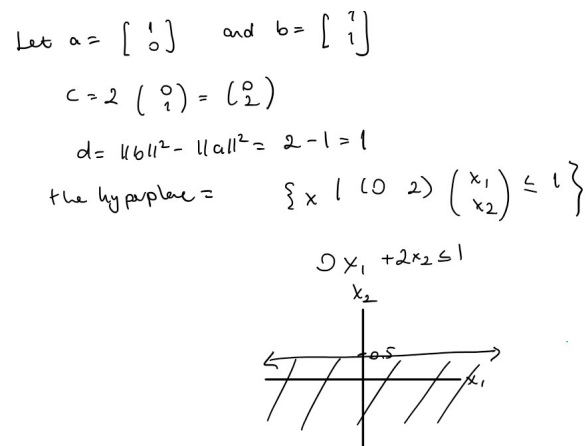 Let a = [ 1 0 ] and b = [ 1 1 ]
c = 2 ( 0 1 ) = ( 0 2 )
d = ||b||² - ||a||² = 2 - 1 = 1
the hyperplane = { x | (0 2) ( x₁ x₂ ) ≤ 1 }
0 x₁ + 2x₂ ≤ 1
x₂
0.5
x₁